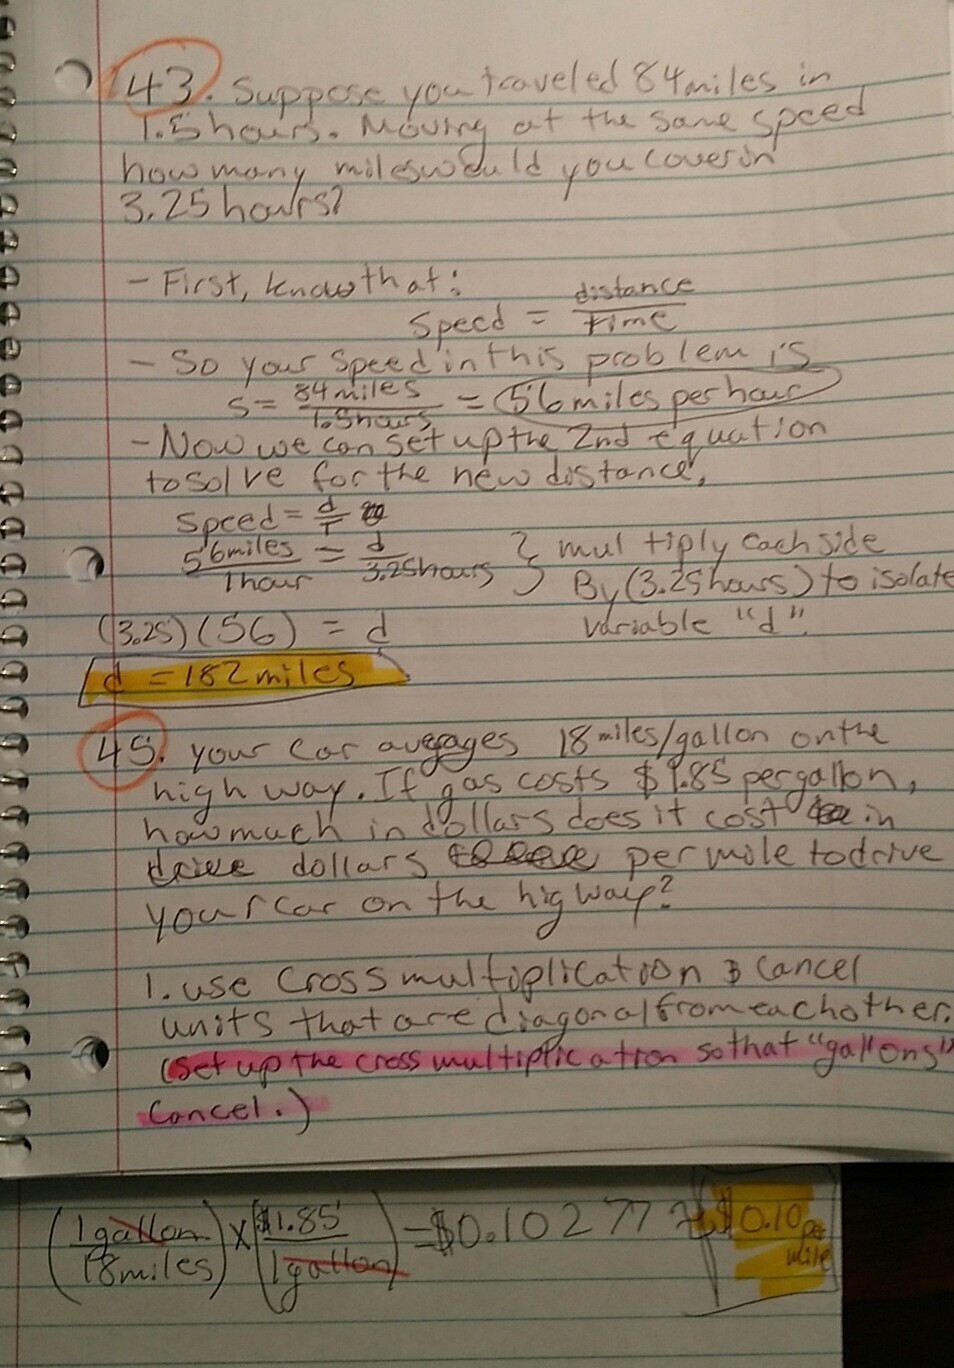 43. Suppose you traveled 84 miles in
1.5 hours. Moving at the same speed
how many miles would you cover in
3.25 hours?
- First, know that:
Speed = distance / time
- So your speed in this problem is
S = 84 miles / 1.5 hours = 56 miles per hour
- Now we can set up the 2nd equation
to solve for the new distance.
Speed = d/T
56 miles / 1 hour = d / 3.25 hours } multiply each side
By (3.25 hours) to isolate
variable "d".
(3.25)(56) = d
d = 182 miles
45. your car averages 18 miles/gallon on the
high way. If gas costs $1.85 per gallon,
how much in dollars does it cost in
dollars per mile to drive
your car on the higway?
1. use Cross multiplication & cancel
units that are diagonal from each other.
(Set up the cross multiplication so that "gallons"
Cancel.)
(1 gallon / 18 miles) x ($1.85 / 1 gallon) = $0.10277 ≈ $0.10 per
mile